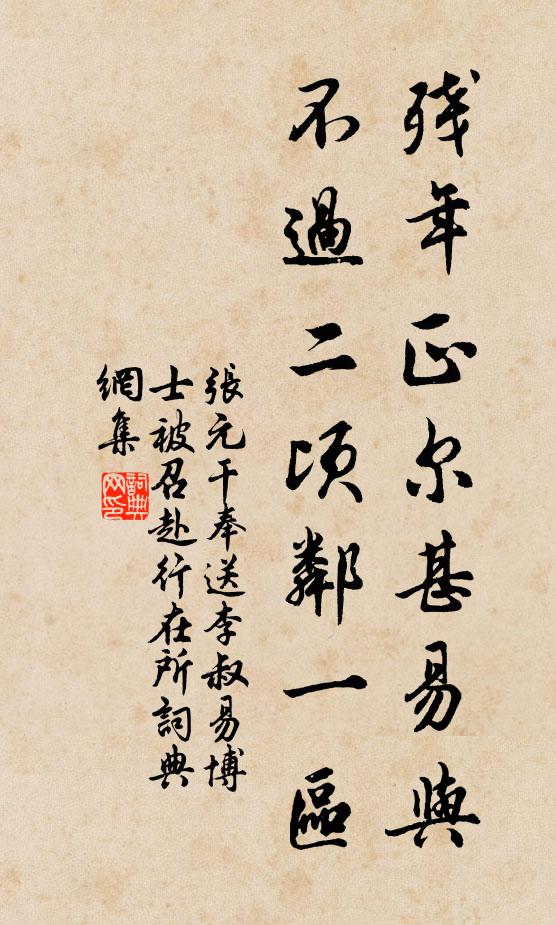 残年正尔甚易与
不過二頃鄰一區
張元干奉送李叔易博
士被召赴行在所詞典
網集
詞典
网印